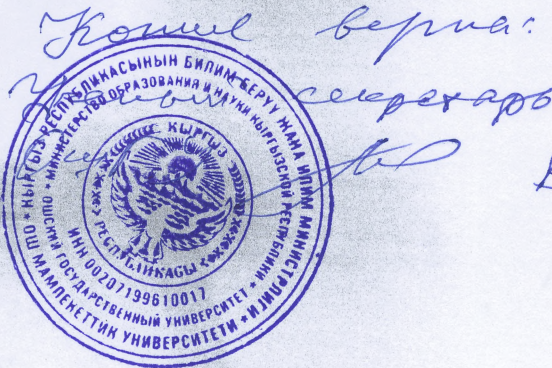 Копия верна:
Ученый секретарь
КЫРГЫЗ РЕСПУБЛИКАСЫНЫН БИЛИМ БЕРҮҮ ЖАНА ИЛИМ МИНИСТРЛИГИ
* ОШ МАМЛЕКЕТТИК УНИВЕРСИТЕТИ *
* МИНИСТЕРСТВО ОБРАЗОВАНИЯ И НАУКИ КЫРГЫЗСКОЙ РЕСПУБЛИКИ *
ОШСКИЙ ГОСУДАРСТВЕННЫЙ УНИВЕРСИТЕТ
ИНН 00207199610017
КЫРГЫЗ
РЕСПУБЛИКАСЫ